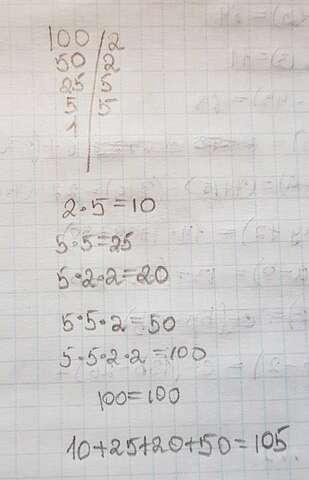 100 2
50 2
25 5
5 5
1
2·5=10
5·5=25
5·2·2=20
5·5·2=50
5·5·2·2=100
100=100
10+25+20+50=105